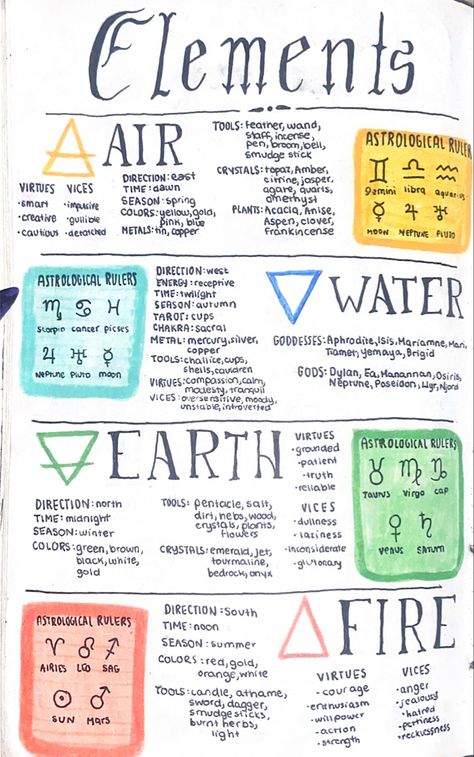 Elements
AIR
TOOLS: feather, wand,
staff, incense,
pen, broom, bell,
smudge stick
CRYSTALS: topaz, Amber,
citrine, jasper,
agate, quarts,
amethyst
PLANTS: Acacia, Anise,
Aspen, clover,
Frankincense
VIRTUES
•smart
•creative
•cautious
VICES
•impulsive
•gullible
•detatched
DIRECTION: east
TIME: dawn
SEASON: spring
COLORS: yellow, gold,
pink, blue
METALS: tin, copper
ASTROLOGICAL RULERS
♊ ♎ ♒
Gemini libra aquarius
☿ ♃ ♅
MOON NEPTUNE PLUTO
ASTROLOGICAL RULERS
♏ ♋ ♓
Scorpio cancer pisces
♃ ♅ ☿
Neptune Pluto moon
DIRECTION: west
ENERGY: receptive
TIME: twilight
SEASON: autumn
TAROT: cups
CHAKRA: sacral
METAL: mercury, silver,
copper
TOOLS: challice, cups,
shells, cauldren
VIRTUES: compassion, calm,
modesty, tranquil
VICES: oversensitive, moody,
unstable, introverted
WATER
GODDESSES: Aphrodite, Isis, Mariamne, Mari,
Tiamet, Yemaya, Brigid
GODS: Dylan, Ea, Manannan, Osiris,
Neptune, Poseidon, Njord
EARTH
DIRECTION: north
TIME: midnight
SEASON: winter
COLORS: green, brown,
black, white,
gold
TOOLS: pentacle, salt,
dirt, herbs, wood,
crystals, plants,
flowers
CRYSTALS: emerald, jet,
tourmaline,
bedrock, onyx
VIRTUES
•grounded
•patient
•truth
•reliable
VICES
•dullness
•laziness
•inconsiderate
•glutonary
ASTROLOGICAL RULERS
♉ ♍ ♑
Taurus Virgo cap
♀ ♄
Venus Saturn
ASTROLOGICAL RULERS
♈ ♌ ♐
AIRIES LEO SAG
☉ ♂
SUN Mars
DIRECTION: South
TIME: noon
SEASON: summer
COLORS: red, gold,
orange, white
TOOLS: candle, athame,
sword, dagger,
smudge sticks,
burnt herbs,
light
FIRE
VIRTUES
•courage
•enthusiasm
•willpower
•action
•strength
VICES
•anger
•jealousy
•hatred
•pettiness
•recklessness